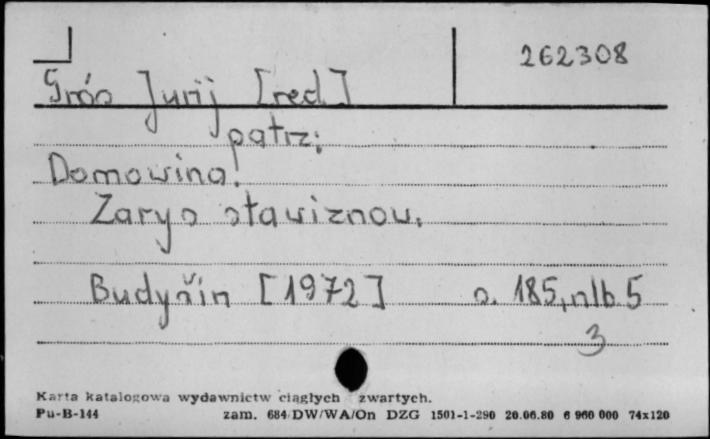 262308
Grós Jurij [red]
patrz:
Domowina!
Zarys stawiznow.
Budyšin [1972] s. 185, nlb 5
3
Karta katalogowa wydawnictw ciągłych i zwartych.
Pu-B-144 zam. 684/DW/WA/On DZG 1501-1-290 20.06.80 6 960 000 74x120